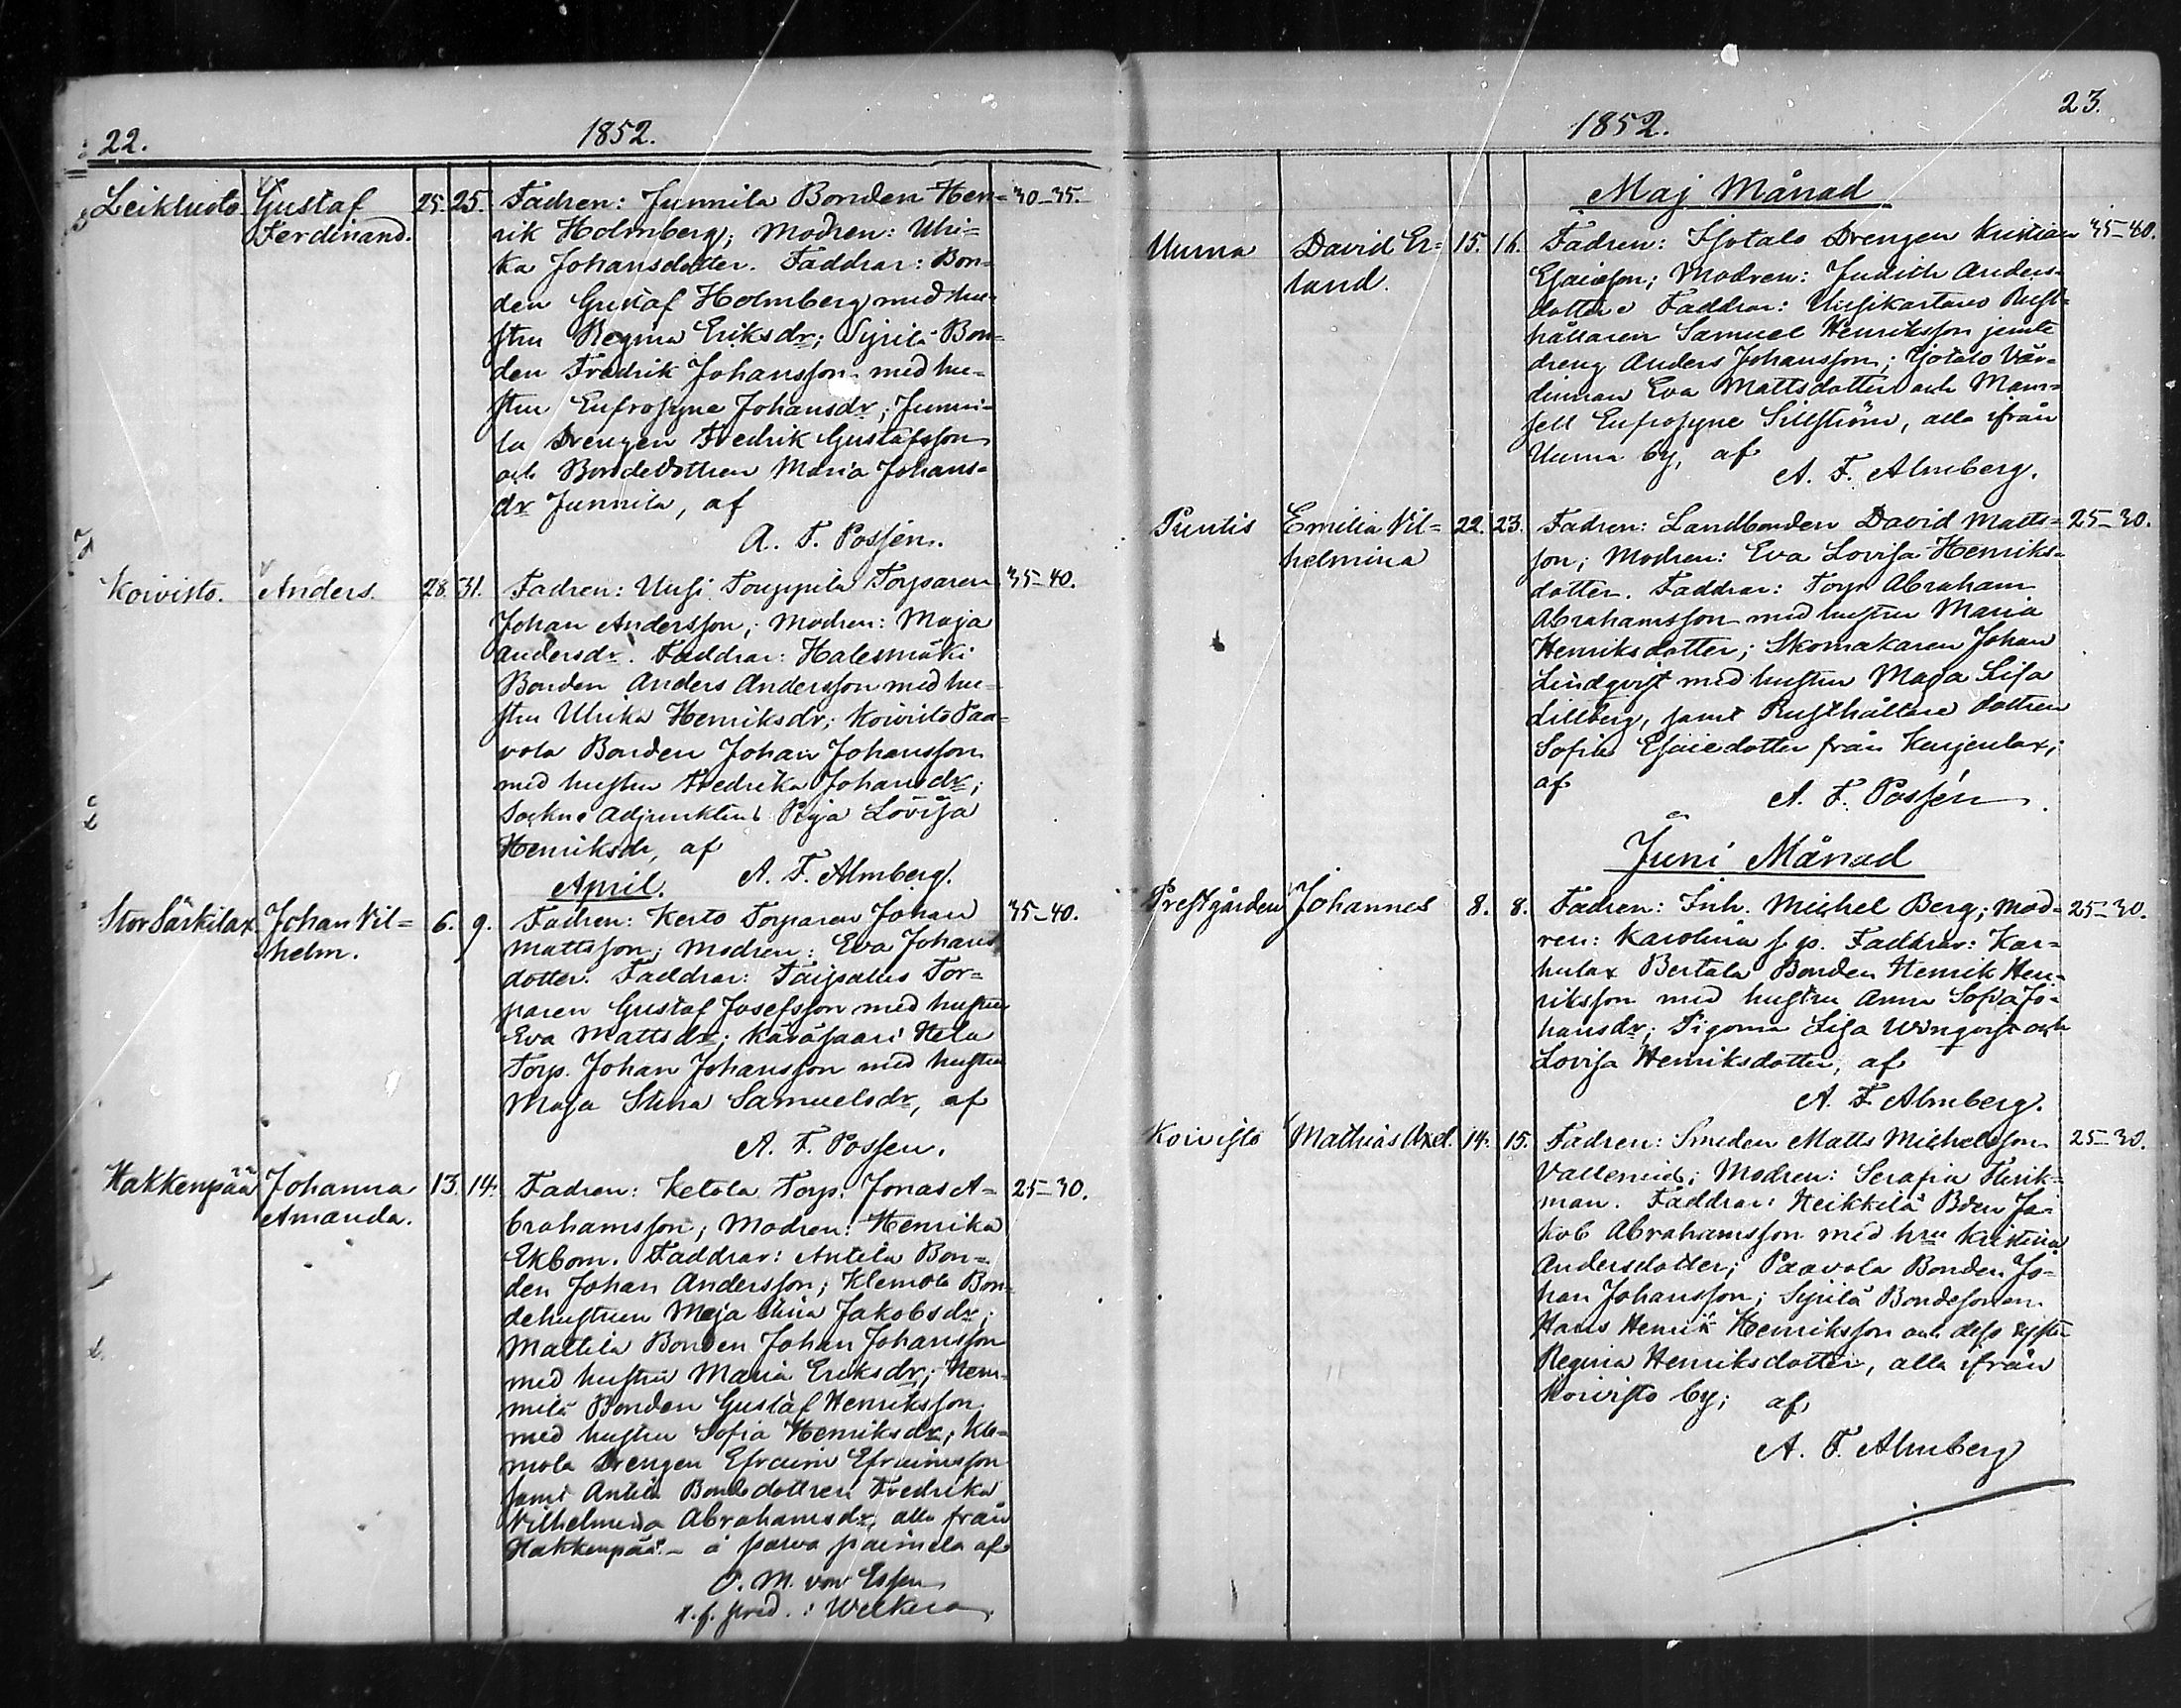 22.
1852.
Leikluoto Gustaf 25. 25. Fadren: Junnila Bonden Hen= 30-35.
Ferdinand. rik Holmberg; Modren: Ulri-
ka Johansdotter. Faddrar: Bon-
den Gustaf Holmberg med hu-
stru Regina Eriksdr; Syrilä Bon-
den Fredrik Johansson med hu=
stru Eufrosyne Johansdr; Junni-
la Drengen Fredrik Gustafsson
och Bondedottren Maria Johans-
dr Junnila, af
A. F. Possén.
Koivisto. Anders. 28. 31. Fadren: Uusi Torppila Torparen 35-40.
Johan Andersson; Modren: Maja
Andersdr. Faddrar: Halesmäki
Bonden Anders Andersson med hu-
stru Ulrika Henriksdr; Koivisto Paa-
vola Bonden Johan Johansson
med hustru Fredrika Johansdr;
Sockne Adjunktens Piga Lovisa
Henriksdr, af
A. F. Almberg.
April.
Stor Särkilax. Johan Vil= 6. 9. Fadren: Kerto Torparen Johan 35-40.
helm. Mattsson; Modren: Eva Johans
dotter. Faddrar: Taipalus Tor=
paren Gustaf Josefsson med hustru
Eva Mattsdr; Käräsaari Kela
Torp. Johan Johansson med hustru
Maja Stina Samuelsdr, af
A. F. Possen.
Hakkenpää Johanna 13. 14. Fadren: Ketola Torp. Jonas A= 25-30.
Amanda. brahamsson; Modren: Henrika
Ekbom. Faddrar: Antila Bon-
den Johan Andersson; Klemola Bon-
dehustrun Maja Stina Jakobsdr;
Mattila Bonden Johan Johansson
med hustru Maria Eriksdr; Hem-
milä Bonden Gustaf Henriksson
med hustru Sofia Henriksdr; Kle-
mola Drengen Efraim Efraimsson
samt Antila Bondedottren Fredrika
Vilhelmina Abrahamsdr, alla från
Hakkenpää. - af
O. M. von Essen
v. f. pred. i Welkua.
23.
1852.
Maj Månad
Uuma David Er= 15. 16. Fadren: Isotalo Drengen Kristian 35-40.
land. Esaiesson; Modren: Judith Anders-
dotter. Faddrar: Uusikartano Rust-
hållaren Samuel Henriksson jemte
dreng Anders Johansson; Isotalo Vär-
dinnan Eva Mattsdotter och Mam-
sell Eufrosyne Sillström, alla ifrån
Uuma by, af
A. F. Almberg.
Puntis Emilia Vil= 22. 23. Fadren: Landbonden David Matts= 25-30.
helmina son; Modren: Eva Lovisa Henriks-
dotter. Faddrar: Torp. Abraham
Abrahamsson med hustru Maria
Henriksdotter; Skomakaren Johan
Lindqvist med hustru Maja Lisa
Lillberg, samt Rusthållare dottren
Sofia Esaiedotter från Kurjenlax;
af
A. F. Possén.
Juni Månad
Prestgården Johannes 8. 8. Fadren: Inh. Michel Berg; Mod- 25-30.
ren: Karolina Faddrar: Kar=
hulax Bertala Bonden Henrik Hen-
riksson med hustru Anna Sofia Jo-
hansdr; Pigorna Lisa Wingqvist och
Lovisa Henriksdotter, af
A. F. Almberg.
Koivisto Mathias Axel. 14. 15. Fadren: Smeden Matts Michelsson 25-30.
Modren: Serafia
man. Faddrar: Heikkilä Bden Ja-
kob Abrahamsson med hru Kristina
Andersdotter; Paavola Bonden Jo-
han Johansson; Syrilä Bondesonen
Hans Henrik Henriksson och dess syster
Regina Henriksdotter, alla ifrån
Koivisto by; af
A. F. Almberg